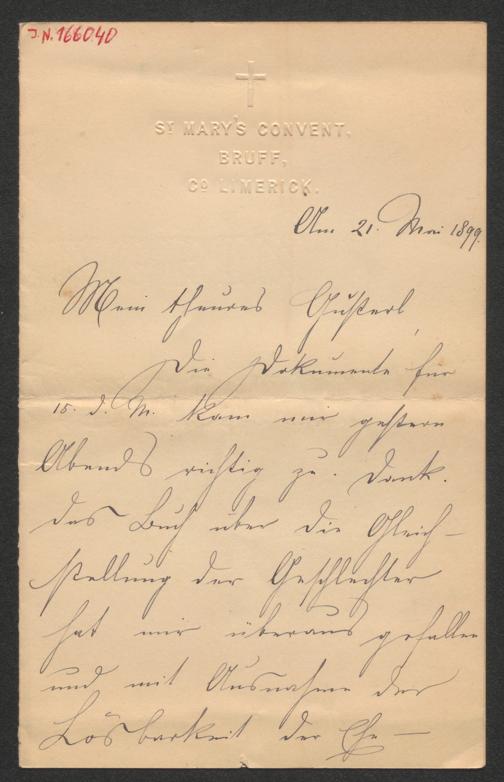 J.N. 166040
ST MARY'S CONVENT,
BRUFF,
CO LIMERICK.
Am 21. Mai 1899.
Mein theures Gusterl,
Die Dokumente für
15. d. M. kam mir gestern
Abends richtig zu. Dank.
Das Buch über die Gleich-
stellung der Geschlechter
hat mir überaus gefallen
und mit Ausnahme der
Lösbarkeit der Ehe –